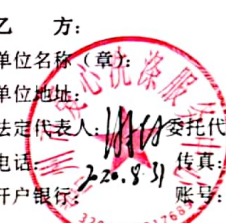 乙 方：
单位名称（章）：
单位地址：
法定代表人： 委托代
电话： 传真：
2020.8.31
开户银行： 账号：
心洗涤服务